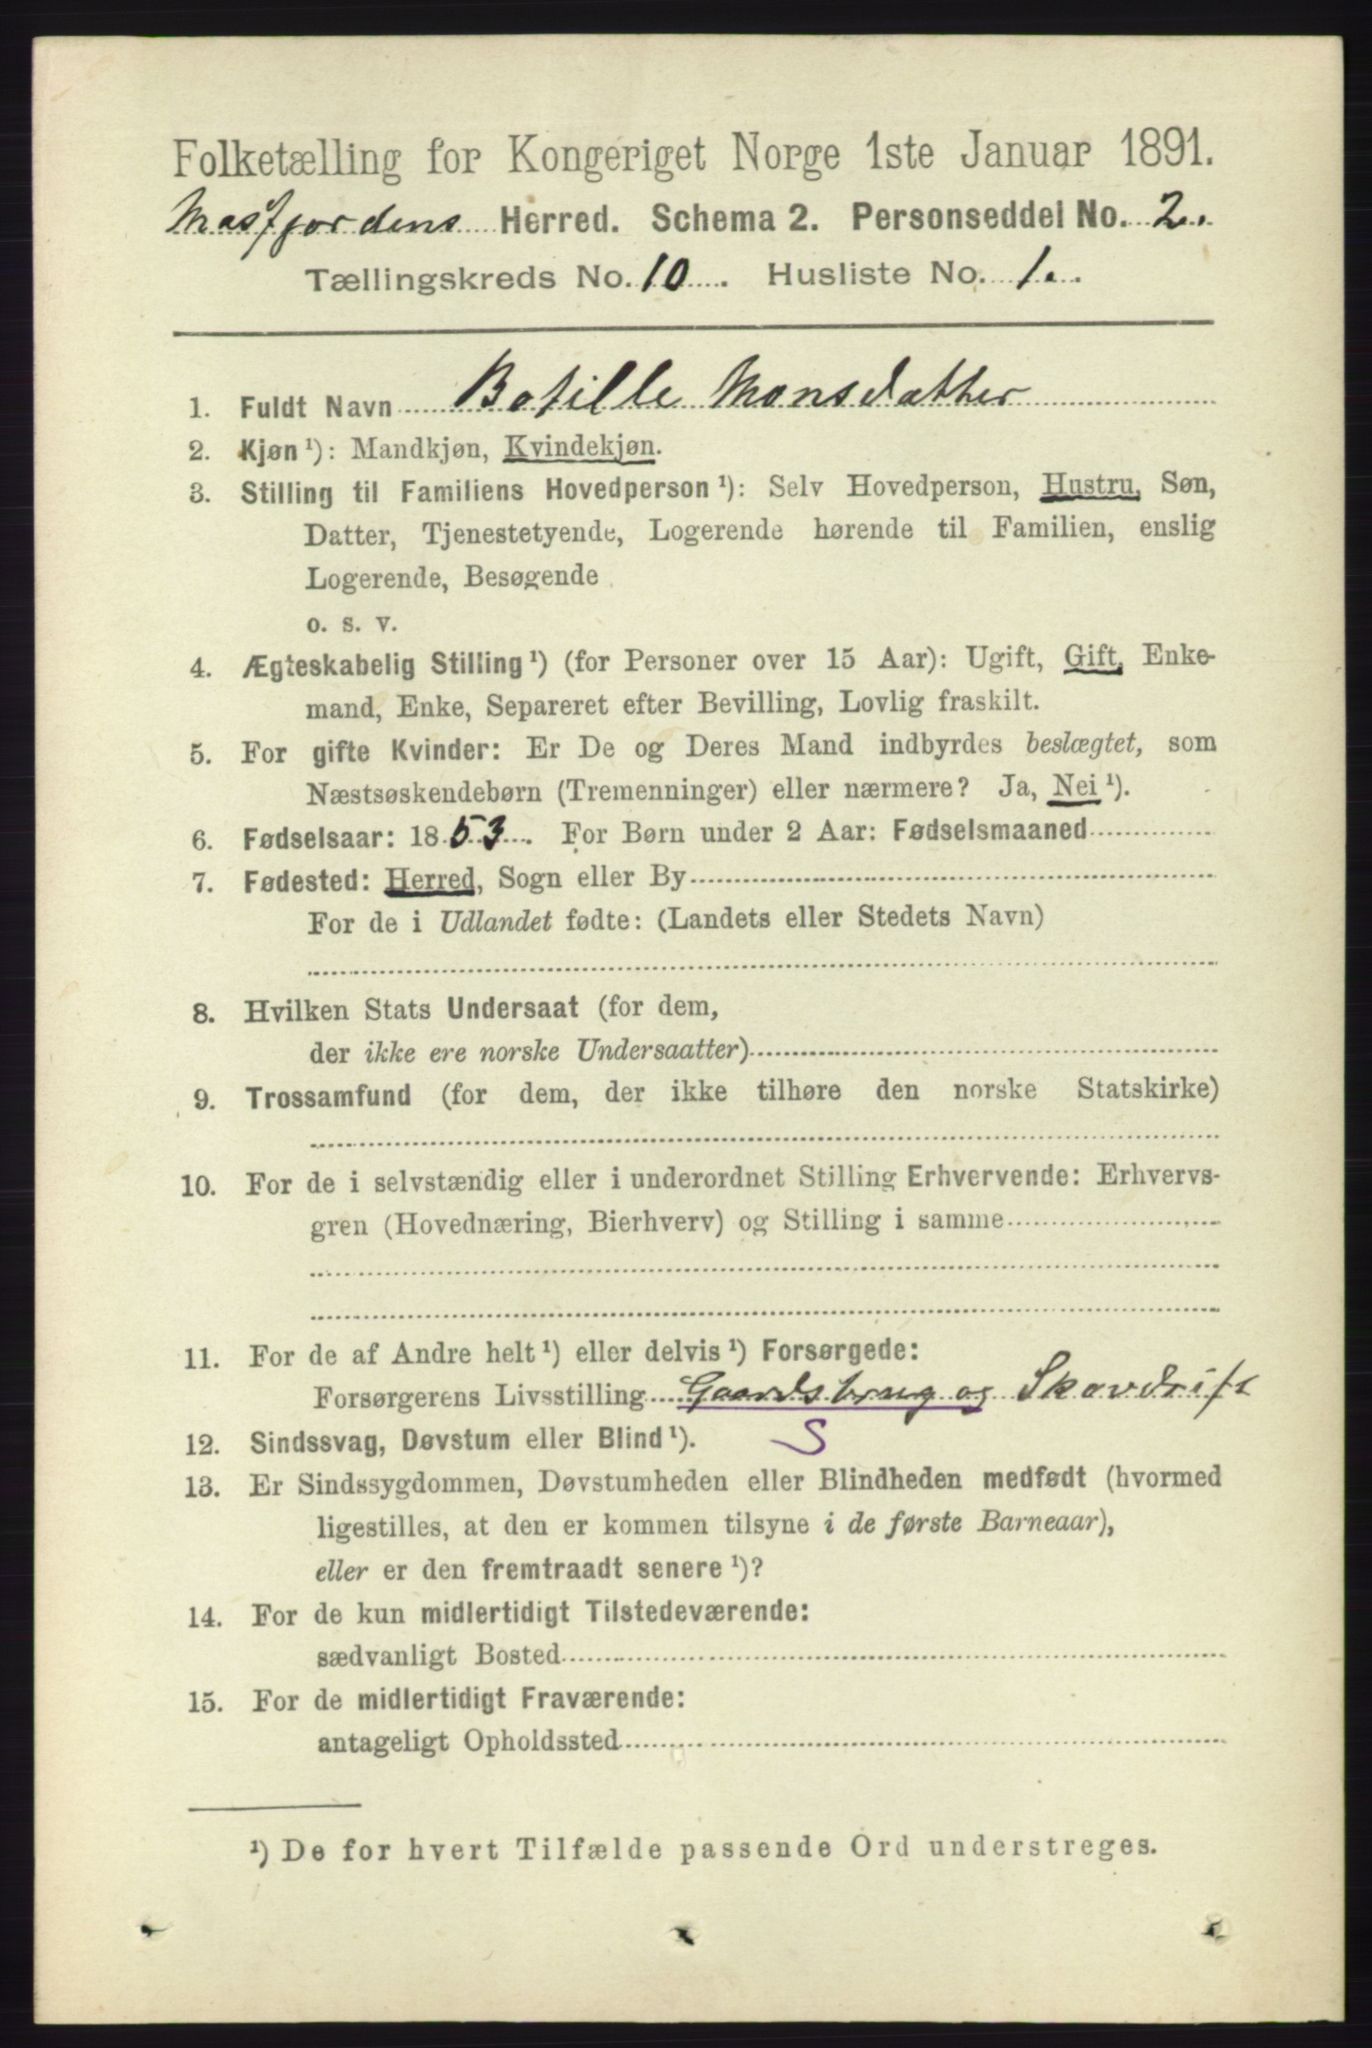 Folketælling for Kongeriget Norge 1ste Januar 1891.
Masfjordens Herred. Schema 2. Personseddel No. 2.
Tællingskreds No. 10. Husliste No. 1.
1. Fuldt Navn Botille Monsdatter
2. Kjøn ¹): Mandkjøn, Kvindekjøn.
3. Stilling til Familiens Hovedperson ¹): Selv Hovedperson, Hustru, Søn,
Datter, Tjenestetyende, Logerende hørende til Familien, enslig
Logerende, Besøgende
o. s. v.
4. Ægteskabelig Stilling ¹) (for Personer over 15 Aar): Ugift, Gift, Enke-
mand, Enke, Separeret efter Bevilling, Lovlig fraskilt.
5. For gifte Kvinder: Er De og Deres Mand indbyrdes beslægtet, som
Næstsøskendebørn (Tremenninger) eller nærmere? Ja, Nei ¹).
6. Fødselsaar: 1853. For Børn under 2 Aar: Fødselsmaaned
7. Fødested: Herred, Sogn eller By
For de i Udlandet fødte: (Landets eller Stedets Navn)
8. Hvilken Stats Undersaat (for dem,
der ikke ere norske Undersaatter)
9. Trossamfund (for dem, der ikke tilhøre den norske Statskirke)
10. For de i selvstændig eller i underordnet Stilling Erhvervende: Erhvervs-
gren (Hovednæring, Bierhverv) og Stilling i samme
11. For de af Andre helt ¹) eller delvis ¹) Forsørgede:
Forsørgerens Livsstilling Gaardsbrug og Skovdrift
12. Sindssvag, Døvstum eller Blind ¹). S
13. Er Sindssygdommen, Døvstumheden eller Blindheden medfødt (hvormed
ligestilles, at den er kommen tilsyne i de første Barneaar),
eller er den fremtraadt senere ¹)?
14. For de kun midlertidigt Tilstedeværende:
sædvanligt Bosted
15. For de midlertidigt Fraværende:
antageligt Opholdssted
¹) De for hvert Tilfælde passende Ord understreges.